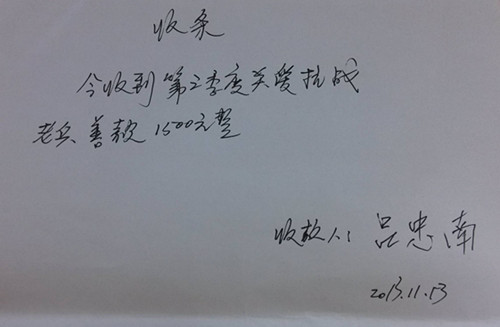 收条
今收到第二季度关爱抗战
老兵善款1500元整
收款人：吕忠南
2013.11.13